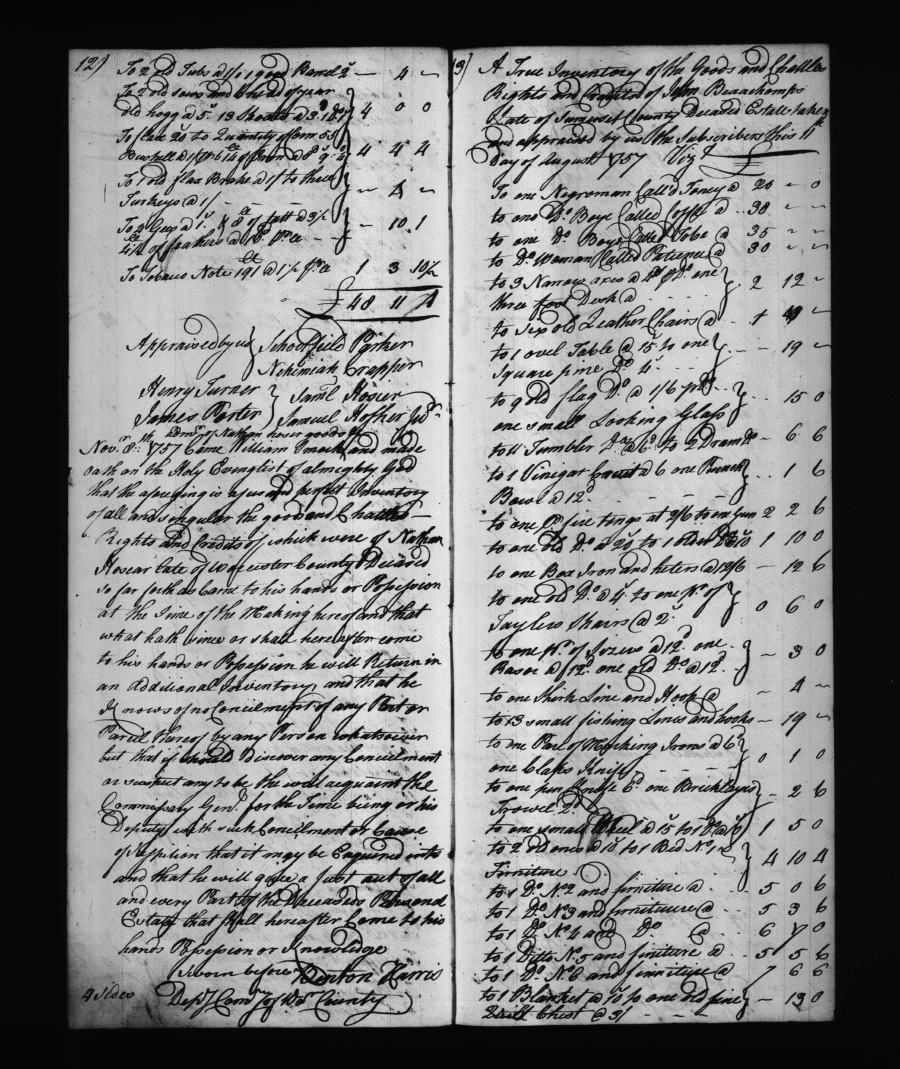 12)
To 2 old Tubs @ 1/ 1 good Barrel 2/ — 4 —
To 2 old sows and
old hogg @ 5/. 13 Shoats @ 3/ 4 0 0
To flax 20 to Quantity of Corn 55
Bushell 4 4 4
To 1 old flax Brake @ 1/ to three
Turkeys @ 1/ — 4 —
To 2 Gees @ 1/. 8 lt of tallt @
4 lt of feathers @ — 10.1
To Tobacco Note 191 lt @ 1 3 10½
£ 48 11
Appraised by us Schoolfield Parker
Nehimiah Crapper
Henry Turner Saml Hosier
James Porter Samuel Hosher Junr
Admr of Nathan hoser goods
Novr 8th. 1757 Came William and made
oath on the Holy Evinglist of almighty God
that the afsuegoing is a Jus and perfect Inventory
of all and singular the good and Chattles
Rights and Credits of which were of Nathan
Hosear late of Worcester County Deceased
So far forth as Come to his hands or Possession
at the Time of the Making hereof and that
what hath since or shall hereafter come
to his hands or Possession he will Return in
an Additional Inventory and that he
Knows of no Concilment of any Part or
Parcel thereof by any Person whatsoever
but that if should Discover any Concilment
or suspect any to be the will acquaint the
Commissary Genl. for the Time being or his
Deputy with such Concilment or Cause
of suspition that it may be Enquired into
and that he will give a Just act of all
and every Part of the Deceaseds Personal
Estate that Shall hereafter Come to his
hands Possession or Knowledge
Sworn before Benton Harris
4 Sides Depy Comry of Wor County
13)
A True Inventory of the Goods and Chattles
Rights and Credits of John Beauchamps
Late of Sumerset County Deceased Estate taken
and appraised by us the Subscribers this 11th
day of August 1757 Vizt £
To one Negroman Call'd Toney @ 20 - 0
to one Do. Boye Called Coffe @ .. 38 - -
to one Do Boye Called Tobe @ 35 - -
to Do. Woman Called Patience @ 30 - -
to 3 Narrow axes @ one
three foot Desk @ 2 12 -
to Six old Leather Chairs @ 1 10 -
to 1 ovel Table @ 15 to one
Square pine Do. 4/. — 19 -
to 9 old flag Do @ 1/6
one small Looking Glass 15 0
to 11 Tumbler Ds. @ 6d. to 2 Dram Do - 6 6
to 1 Vinegar Cruit @ 6 one Punch
Bowl @ 12d. - 1 6
to one Pr fire tongs at 2/6 to one Gun 2 2 6
to one old Do. @ 20 to 1 older Do 10 1 10 0
to one Box Iron and heters @ 12/6 - 12 6
to one old Do. @ 4/. to one Pr. of
Taylers Shairs @ 2/. 0 6 0
to one Pr. of Sizers @ 12d. one
Rasor @ 12d. one old Do @ 12d. - 3 0
to one Shirk Line and Hook @ - 4 -
to 13 small fishing Lines and hooks — 19 -
to one Pare of Marking Irons @ 6
one Clasp Knife 0 1 0
to one pen knife 6d. one Bricklayers
Trowel 2/. - 2 6
to one small Wheel @ 15 to 1 Do @ 10 1 5 0
to 2 old ones @ 10 to 1 Bed No 1 &
Furniture 4 10 4
to 1 Do. No 2 and furniture @ 5 0 6
to 1 Do. No 3 and furnituire @ 5 3 6
to 1 Do. No 4 and Do @ 6 7 0
to 1 Ditto No. 5 and furniture @ 5 5 6
to 1 Do. No. 6 and furniture @ 7 6 6
to 1 Blanket @ 10/ to one old pine
Chist @ 3/ — 13 0